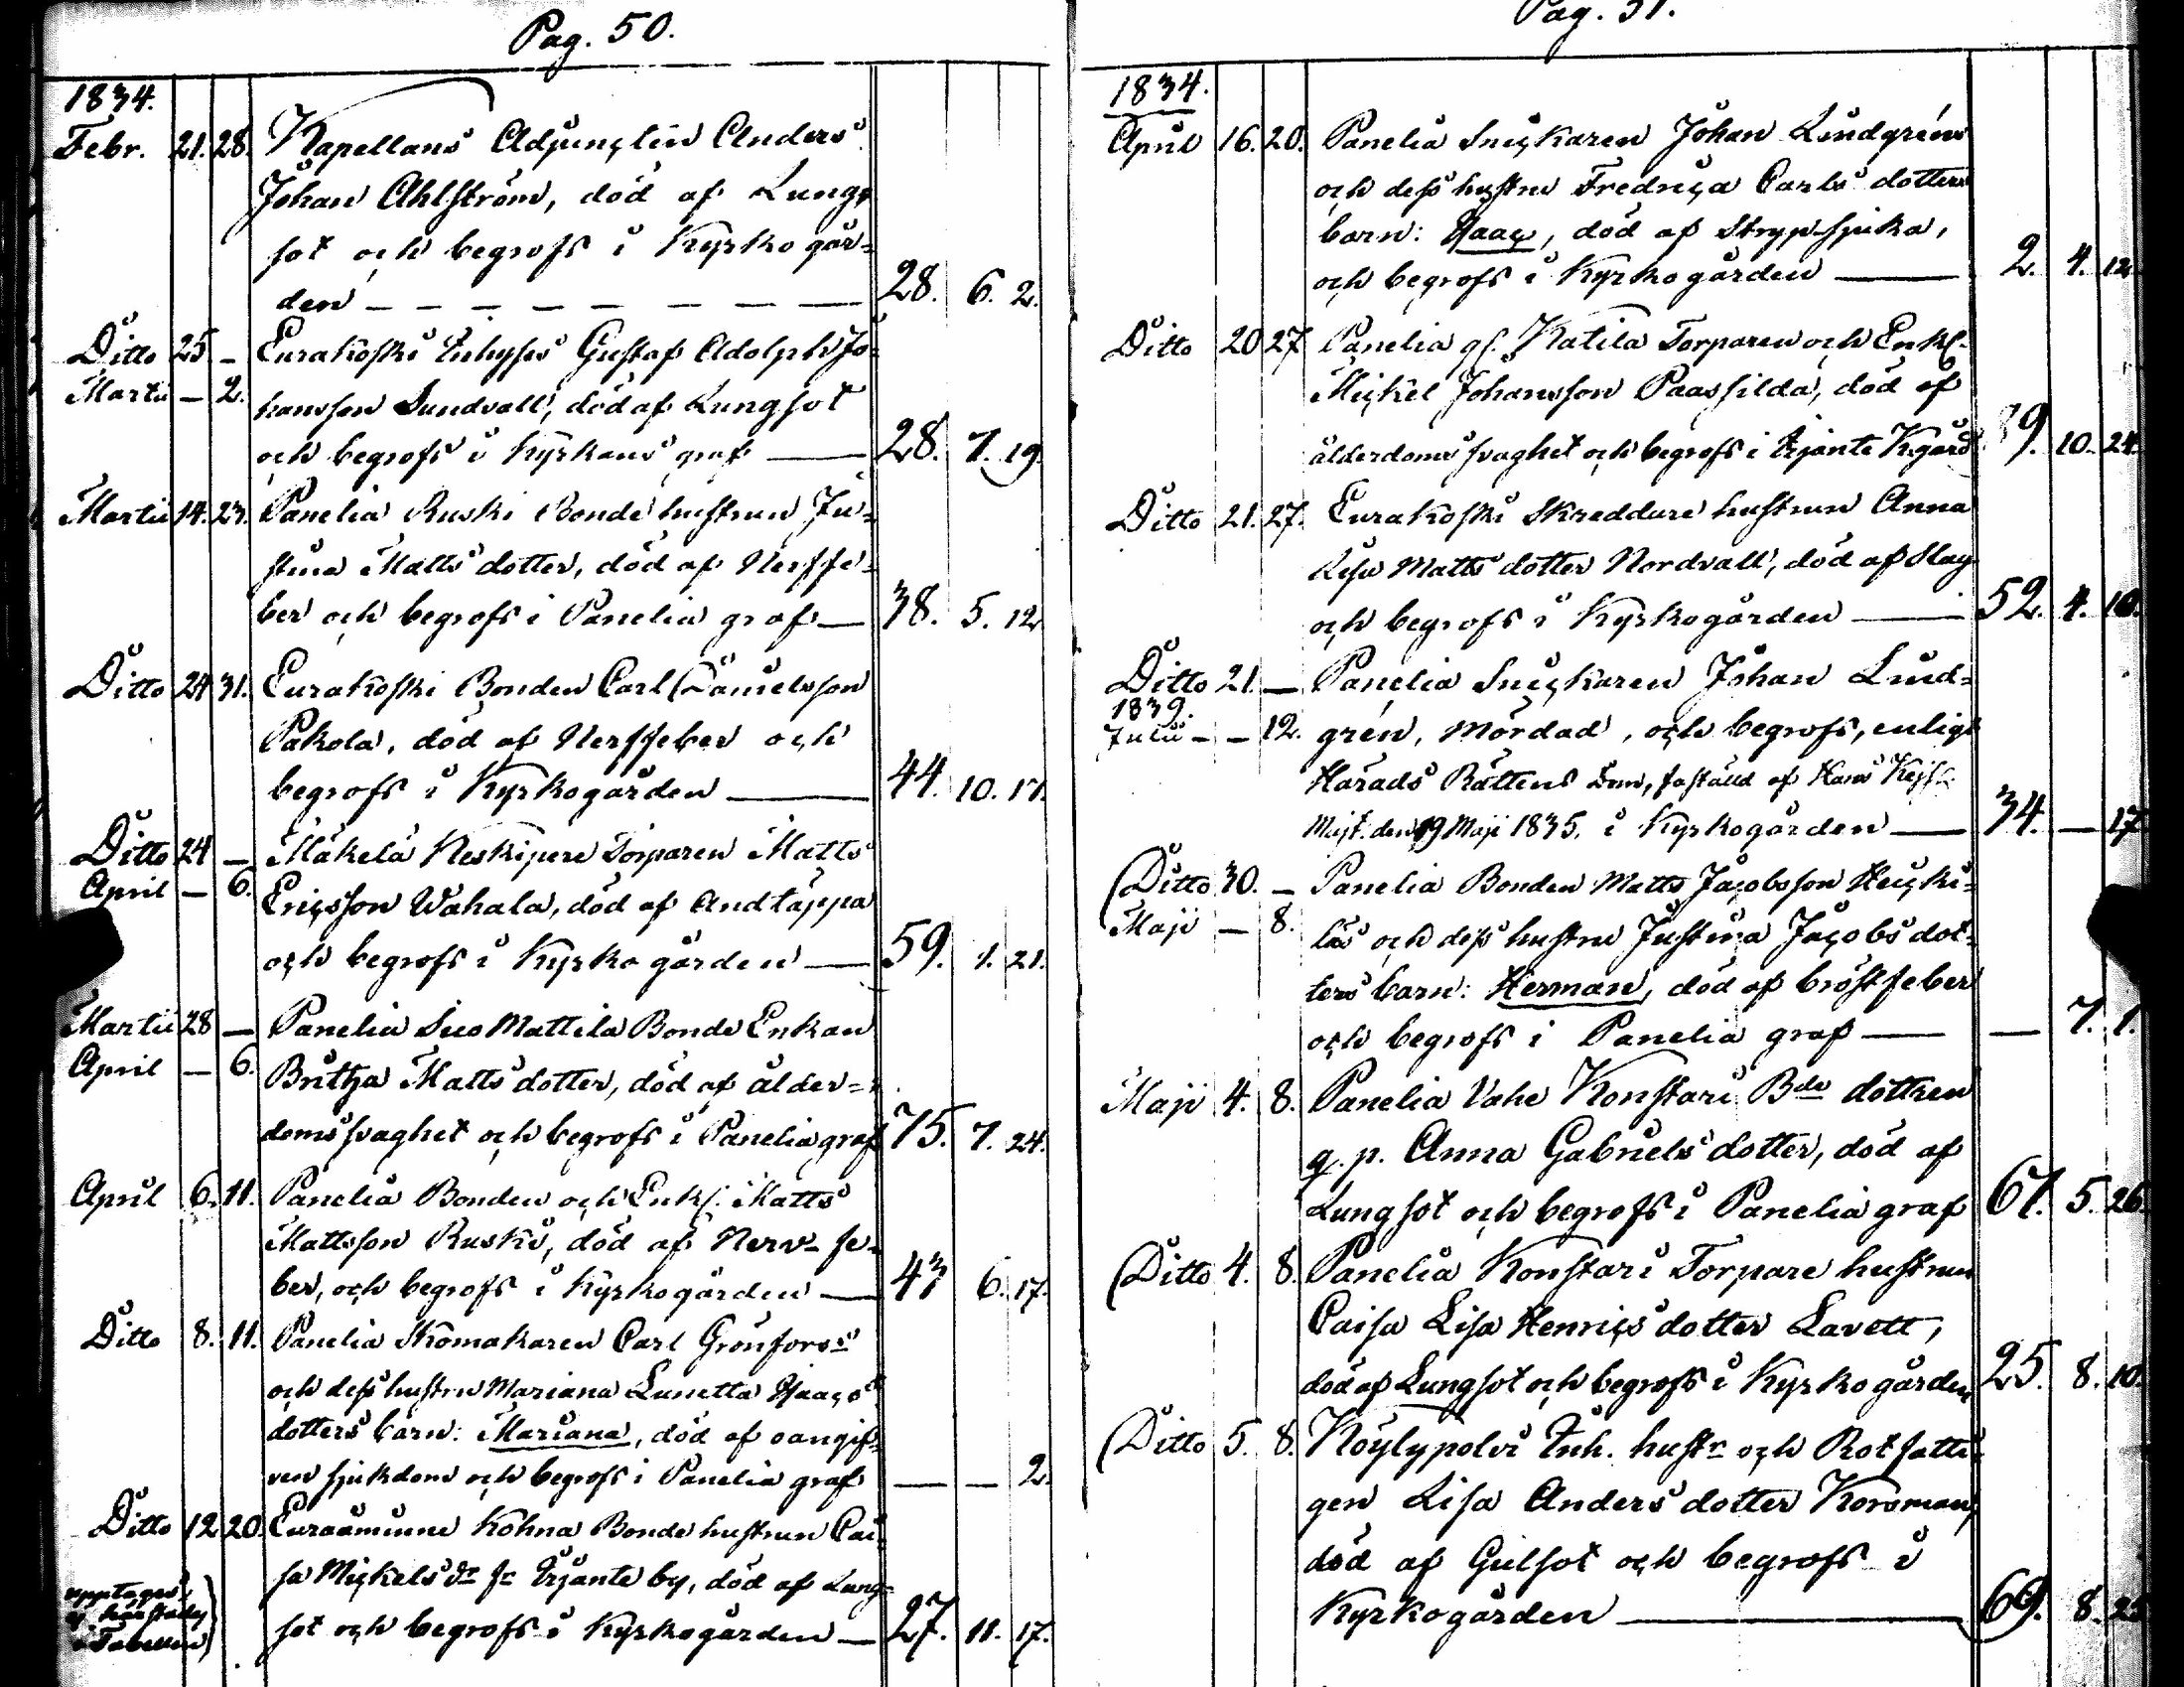 Pag. 50.
1834.
Febr. 21. 28. Kapellans Adjuncten Anders
Johan Ahlström, död af Lung-
sot och begrofs i Kyrkogår-
den — — — — — — — 28. 6. 2.
Ditto 25 — Eurakoski Inhyses Gustaf Adolph Jo-
Martii — 2. hansson Sundvall, död af Lungsot
och begrofs i Kyrkans graf — 28. 7. 19.
Martii 14. 23. Panelia Ruski Bonde hustrun Ju-
stina Matts dotter, död af Nerffe-
ber och begrofs i Panelia graf — 38. 5. 12.
Ditto 24 31. Eurakoski Bonden Carl Danielsson
Pakola, död af Nerffeber och
begrofs i Kyrkogården — 44. 10. 17.
Ditto 24 — Mäkelä Keskipere Torparen Matts
April — 6. Ericsson Wahala, död af Andtäppa
och begrofs i Kyrkogården — 59. 1. 21.
Martii 28 — Panelia Mattila Bonde Enkan
April — 6. Britha Matts dotter, död af ålder-
domssvaghet och begrofs i Panelia graf 75. 7. 24.
April 6. 11. Panelia Bonden och Enkl. Matts
Mattsson Ruski, död af Nerv-fe-
ber, och begrofs i Kyrkogården — 43 6. 17.
Ditto 8. 11. Panelia Skomakaren Carl Grönfors
och dess hustru Mariana Lunetta Isaacs
dotters barn: Mariana, död af oangif-
ven sjukdom och begrofs i Panelia graf — — 2.
Ditto 12 20. Euraåminne Köhnä Bonde hustrun Cai-
sa Mickels dr fr Irjante by, död af Lung-
upptages
ej härstädes
i Tabellen
sot och begrofs i Kyrkogården — 27. 11. 17.
Pag. 51.
1834.
April 16. 20. Panelia Snickaren Johan Lindgréns
och dess hustru Fredrica Carls dotters
barn: Isaac, död af Strypsjuka,
och begrofs i Kyrkogården — 2. 4. 12
Ditto 20 27 Panelia gl. Katila Torparen och Enkl.
Mickel Johansson Paassilda, död af
ålderdoms svaghet och begrofs i Irjante Kgård 9. 10. 24.
Ditto 21. 27. Eurakoski Skreddare hustrun Anna
Lisa Matts dotter Nordvall, död af Slag
och begrofs i Kyrkogården — 52. 4. 10.
Ditto 21. — Panelia Snickaren Johan Lind-
1839.
Julii — — 12. grén, Mördad, och begrofs, enligt
Härads Rättens Dom, faställd af Hans Kejsl.
Majt. den 19 Maji 1835. i Kyrkogården — 34. — 17
Ditto 30. — Panelia Bonden Matts Jacobsson Heicki-
Maji — 8. läs och dess hustru Justina Jacobs dot-
ters barn: Herman, död af bröstfeber
och begrofs i Panelia graf — — 7. 1.
Maji 4. 8. Panelia Vahe Konstari Bde dottren
g. p. Anna Gabriels dotter, död af
Lungsot och begrofs i Panelia graf 67. 5. 26.
Ditto 4. 8. Panelia Konstari Torpare hustrun
Caisa Lisa Henrics dotter Lavett,
död af Lungsot och begrofs i Kyrkogården 25. 8. 10.
Ditto 5. 8. Köylypolvi Inh. hustr och Rotfatti-
gen Lisa Anders dotter Korsman,
död af Gulsot och begrofs i
Kyrkogården — 69. 8. 25